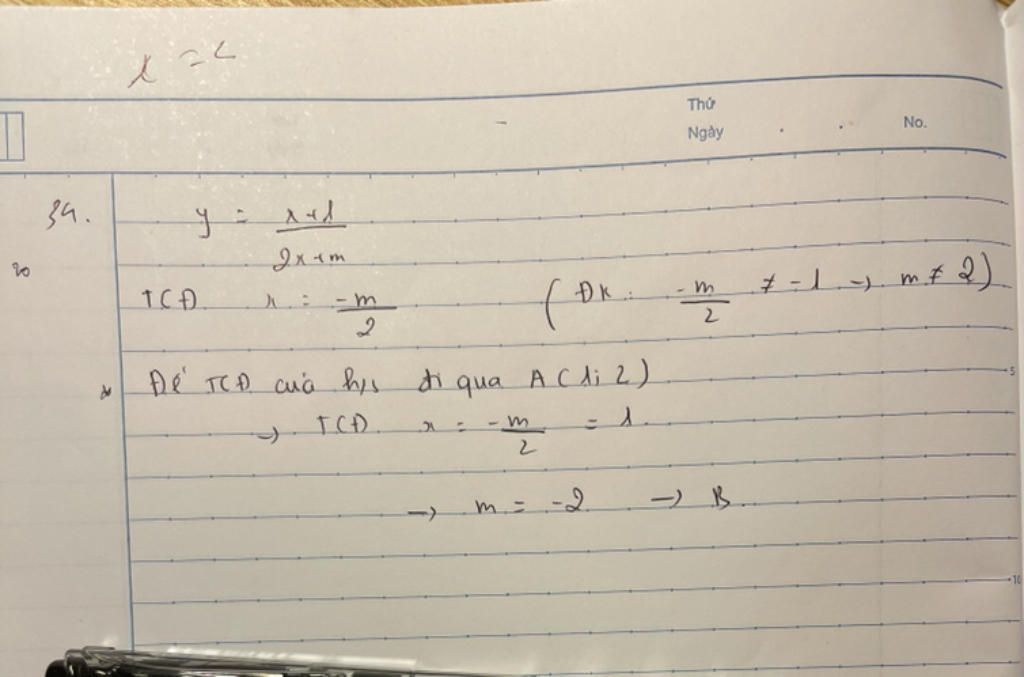 Thứ
Ngày . . No.
34. y = (x+1)/(2x+m)
TCĐ x = -m/2 (ĐK: -m/2 ≠ -1 → m ≠ 2)
Để TCĐ của h/s đi qua A(1;2) 5
→ TCĐ x = -m/2 = 1.
→ m = -2 → B.
10